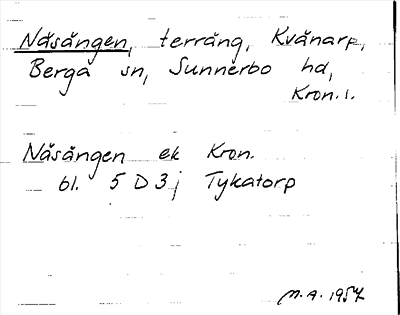 Näsängen, terräng, Kvänarp,
Berga sn, Sunnerbo hd,
Kron. l.
Näsängen ek Kron.
bl. 5 D 3 j Tykatorp
M.A. 1957